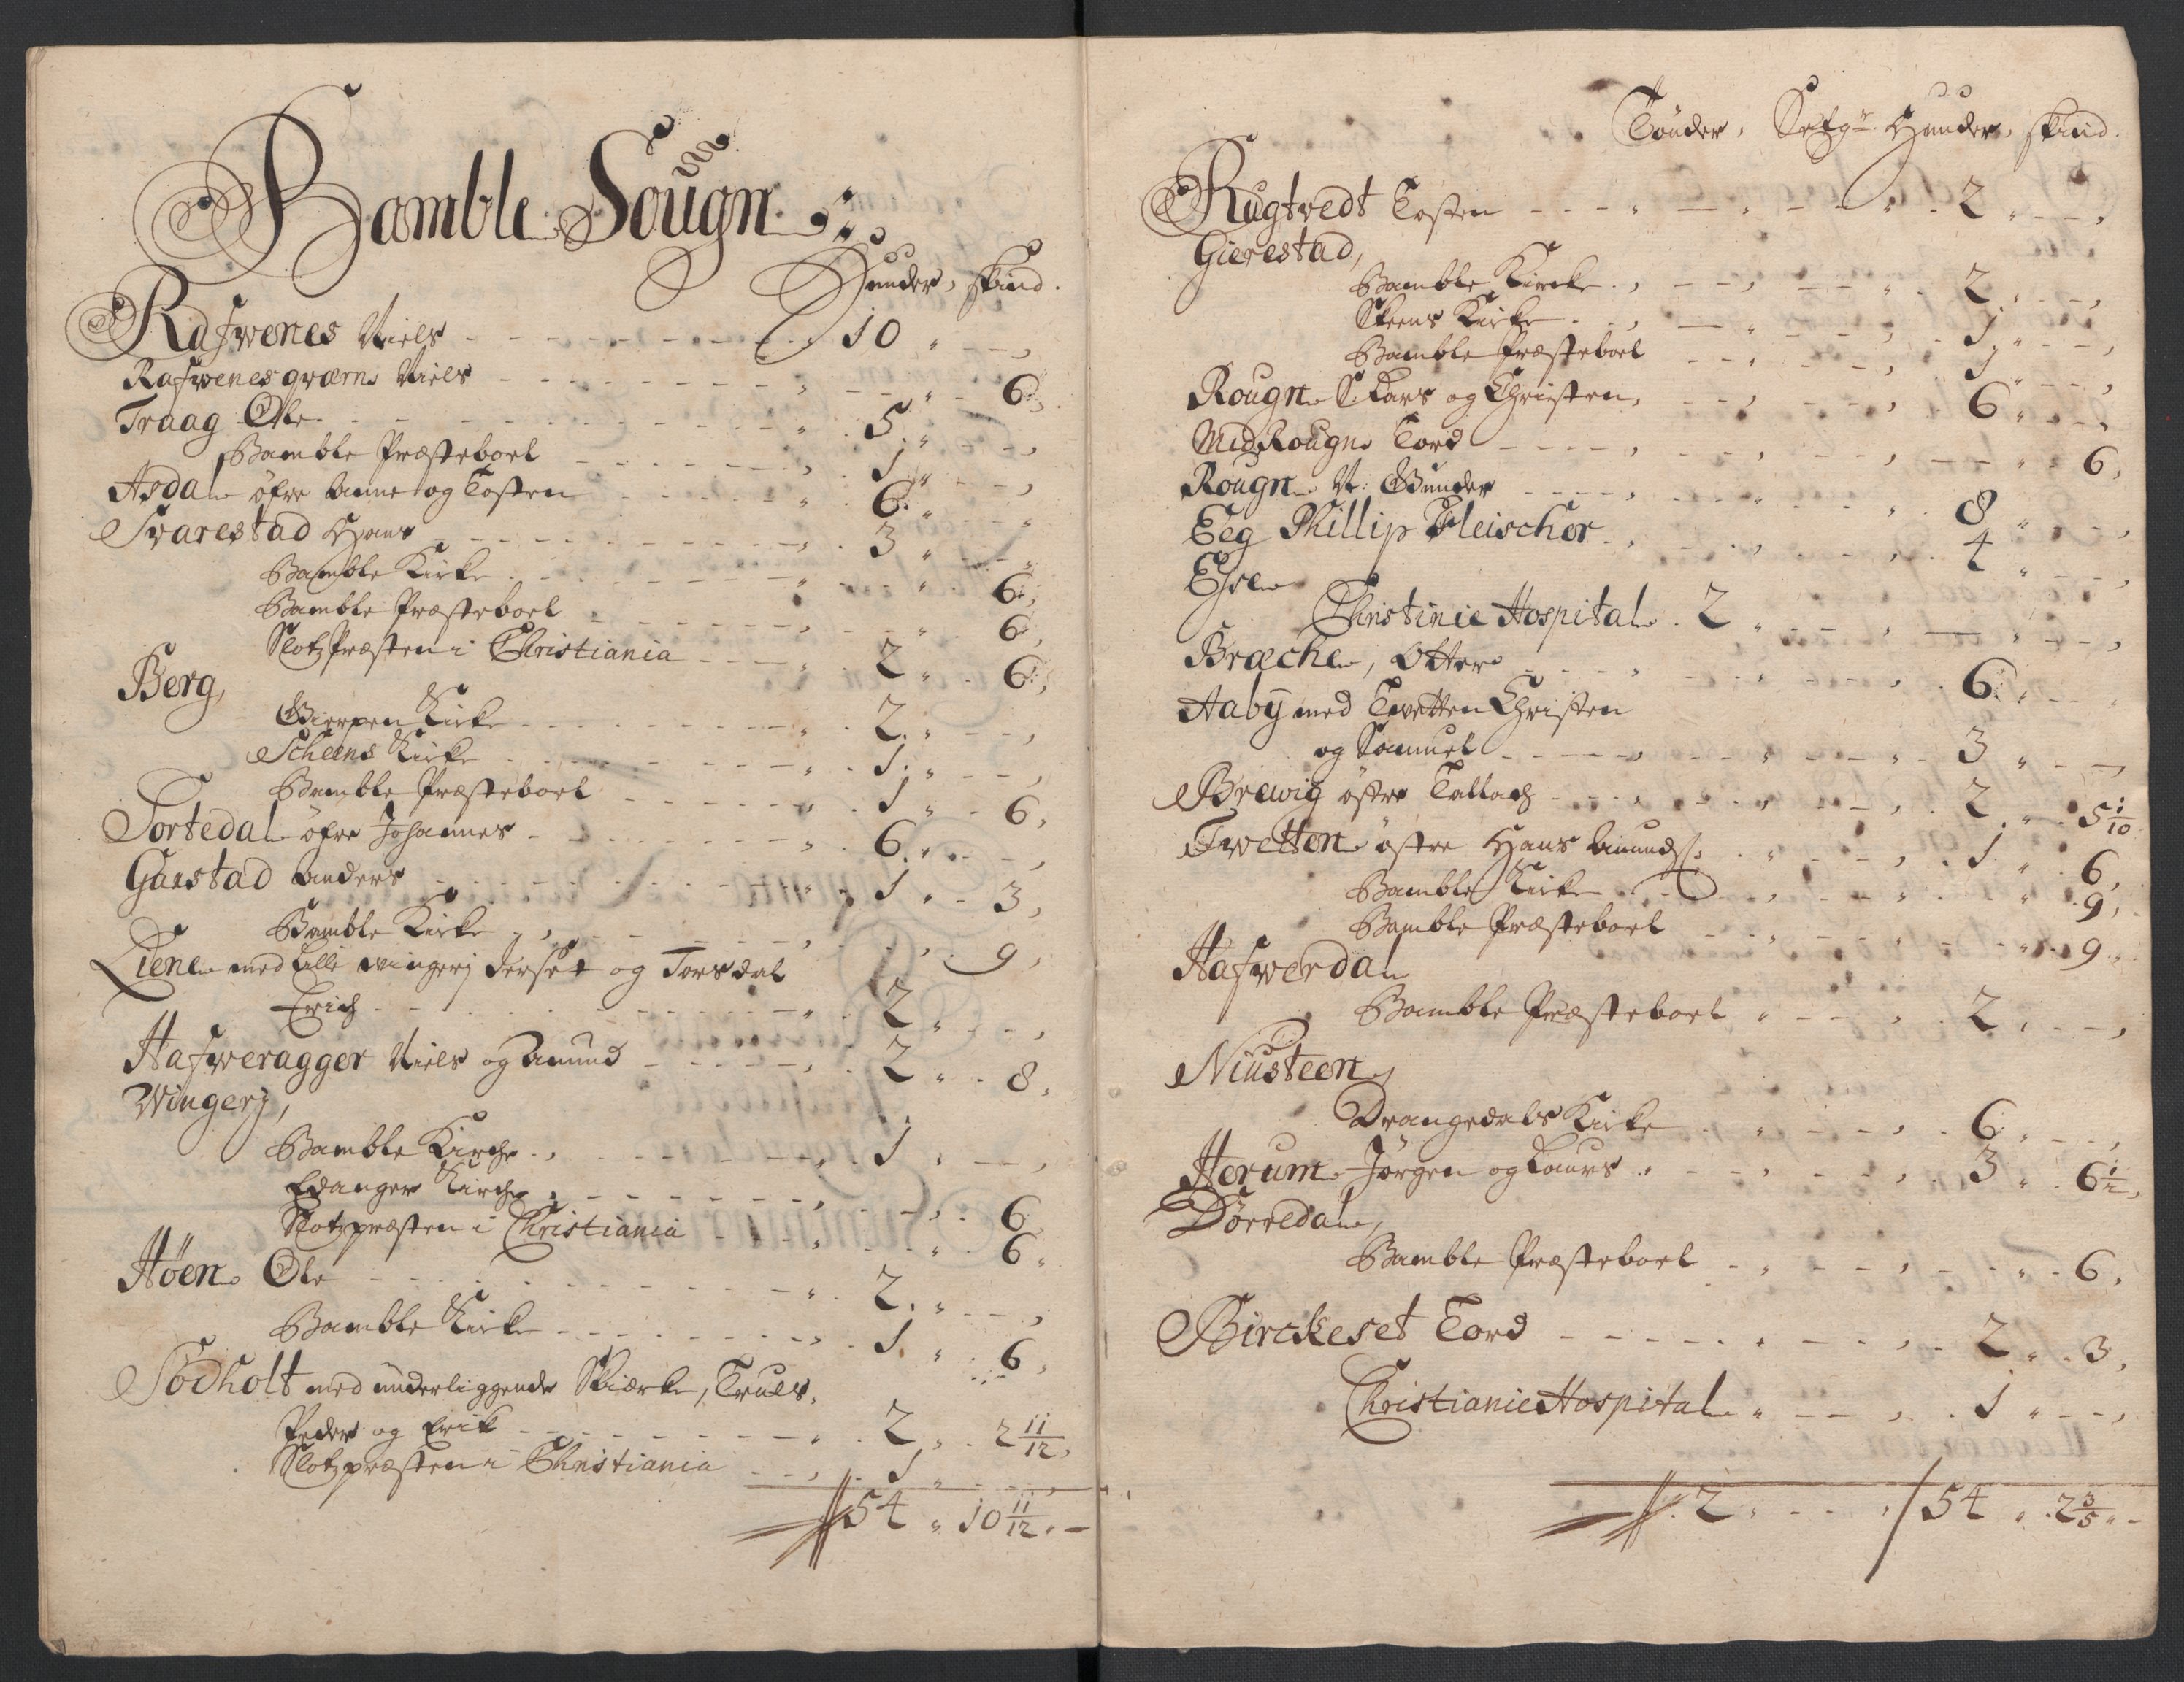 Bamble Sougn
Hunder, skind.
Rafwenes Niels 10
Rafwenes qværn Niels 6
Traag Ole 5
Bamble Præsteboel 1
Asdal öfre Anne og Tosten 6
Svarestad Hans 3
Bamble Kirke 6
Bamble Præsteboel 6
Slotz Præsten i Christiania 2 6
Berg,
Gierpen Kirke 2
Scheens Kirke 1
Bamble Præsteboel 1 6
Tortedal öfre Johannes 6
Gunstad Anders 1 3
Bamble Kirke 9
Liene med Lille Wingerj Derset og Torsdal
Erich 2
Hafweragger Niels og Amund 2 8
Wingerj,
Bamble Kirche 1
Edanger Kirche 6
Slotzpræsten i Christiania 6
Höen Ole 2
Bamble Kirke 1 6
Södholt med underliggende Skierke, Truls,
Peder og Erik 2 2 11/12
Slotzpræsten i Christiania 1
54 10 11/12
Tönder, Hunder, skind.
Rugtvedt Tosten 2
Gierestad,
Bamble Kircke 2
Skeens Kirke 1
Bamble Præsteboel 1
Rougn S Lars og Christen 6
Mid Rougn Tord 6
Rougn N: Gunder 8
Eeg Phillip Fleischer 4
Christinie Hospital 2
Bræche, Otter 6
Aaby med Twetten Christen
og Samuel 3
Brewig östre Tallach 2 5 1/10
Twetten östre Hans Amunds: 1 6
Bamble Kirke 9
Bamble Præsteboel 9
Hafwerdal
Bamble Præsteboel 2
Niusteen,
Drangedals Kirke 6
Herum Jörgen og Laurs 3 6 1/2
Dörredal,
Bamble Præsteboel 6
Birckeset Tord 2 3
Christianie Hospital 1
2 54 2 3/5